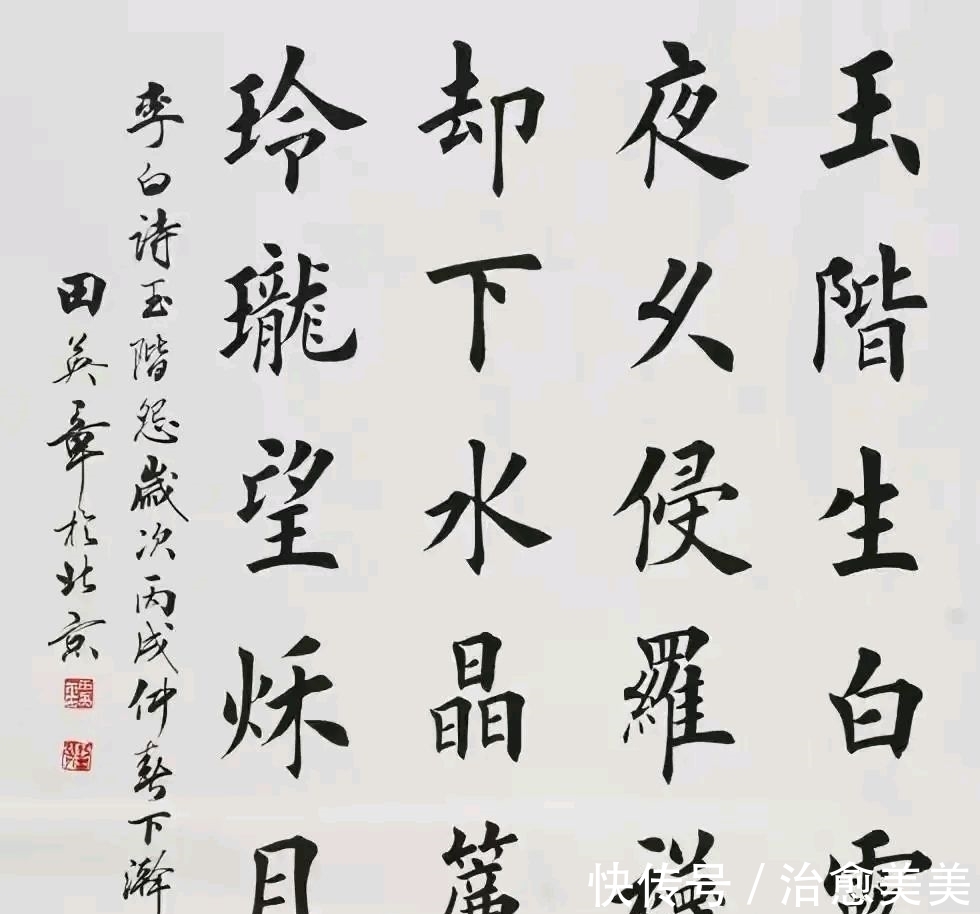 玉階生白露
夜久侵羅襪
却下水晶簾
玲瓏望秌月
李白詩玉階怨歲次丙戌仲春下澣
田英章於北京
快传号/治愈美美